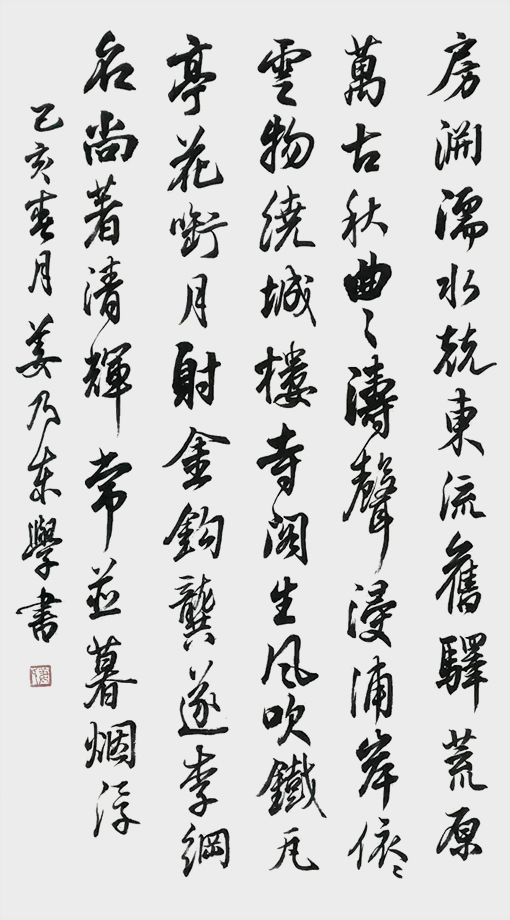 房淵濡水兢東流舊驛荒原
萬古秋曲々濤聲浸浦岸依々
雲物繞城樓寺閣生風吹鐵瓦
亭花啣月射金鉤龔遂李綱
名尚著清輝常並暮烟浮
己亥春月姜乃東學書